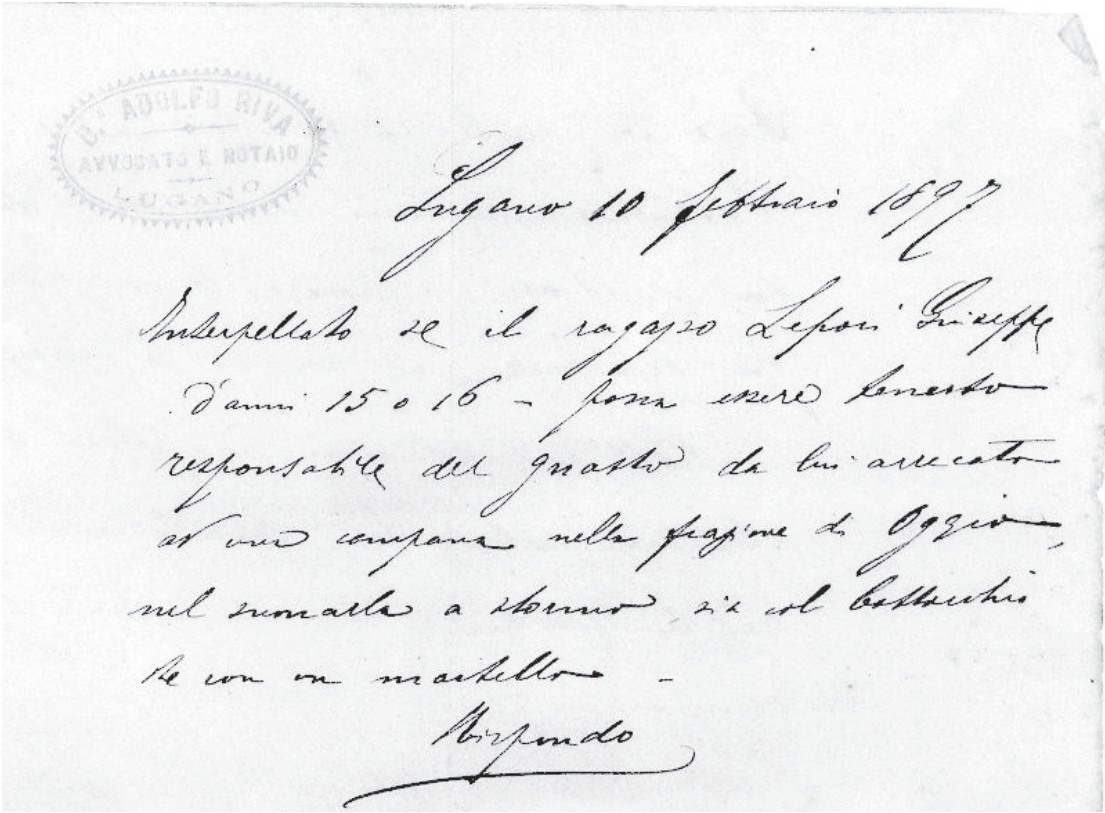 Dr ADOLFO RIVA
AVVOCATO E NOTAIO
LUGANO
Lugano 10 febbraio 1897
Interpellato se il ragazzo Lepori Giuseppe
d'anni 15 o 16 - possa essere tenuto
responsabile del guasto da lui arrecato
ad una campana nella frazione di Oggio,
nel suonarla a stormo sia col battocchio
che con un martello -
Rispondo